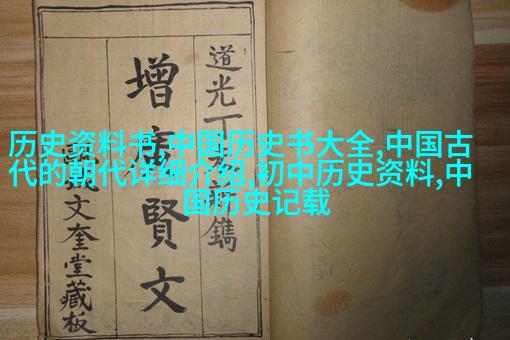 历史资料书,中国历史书大全,中国古
代的朝代详细介绍,初中历史资料,中
国历史记载
道光丁新鐫
增廣賢文
城文奎堂藏板